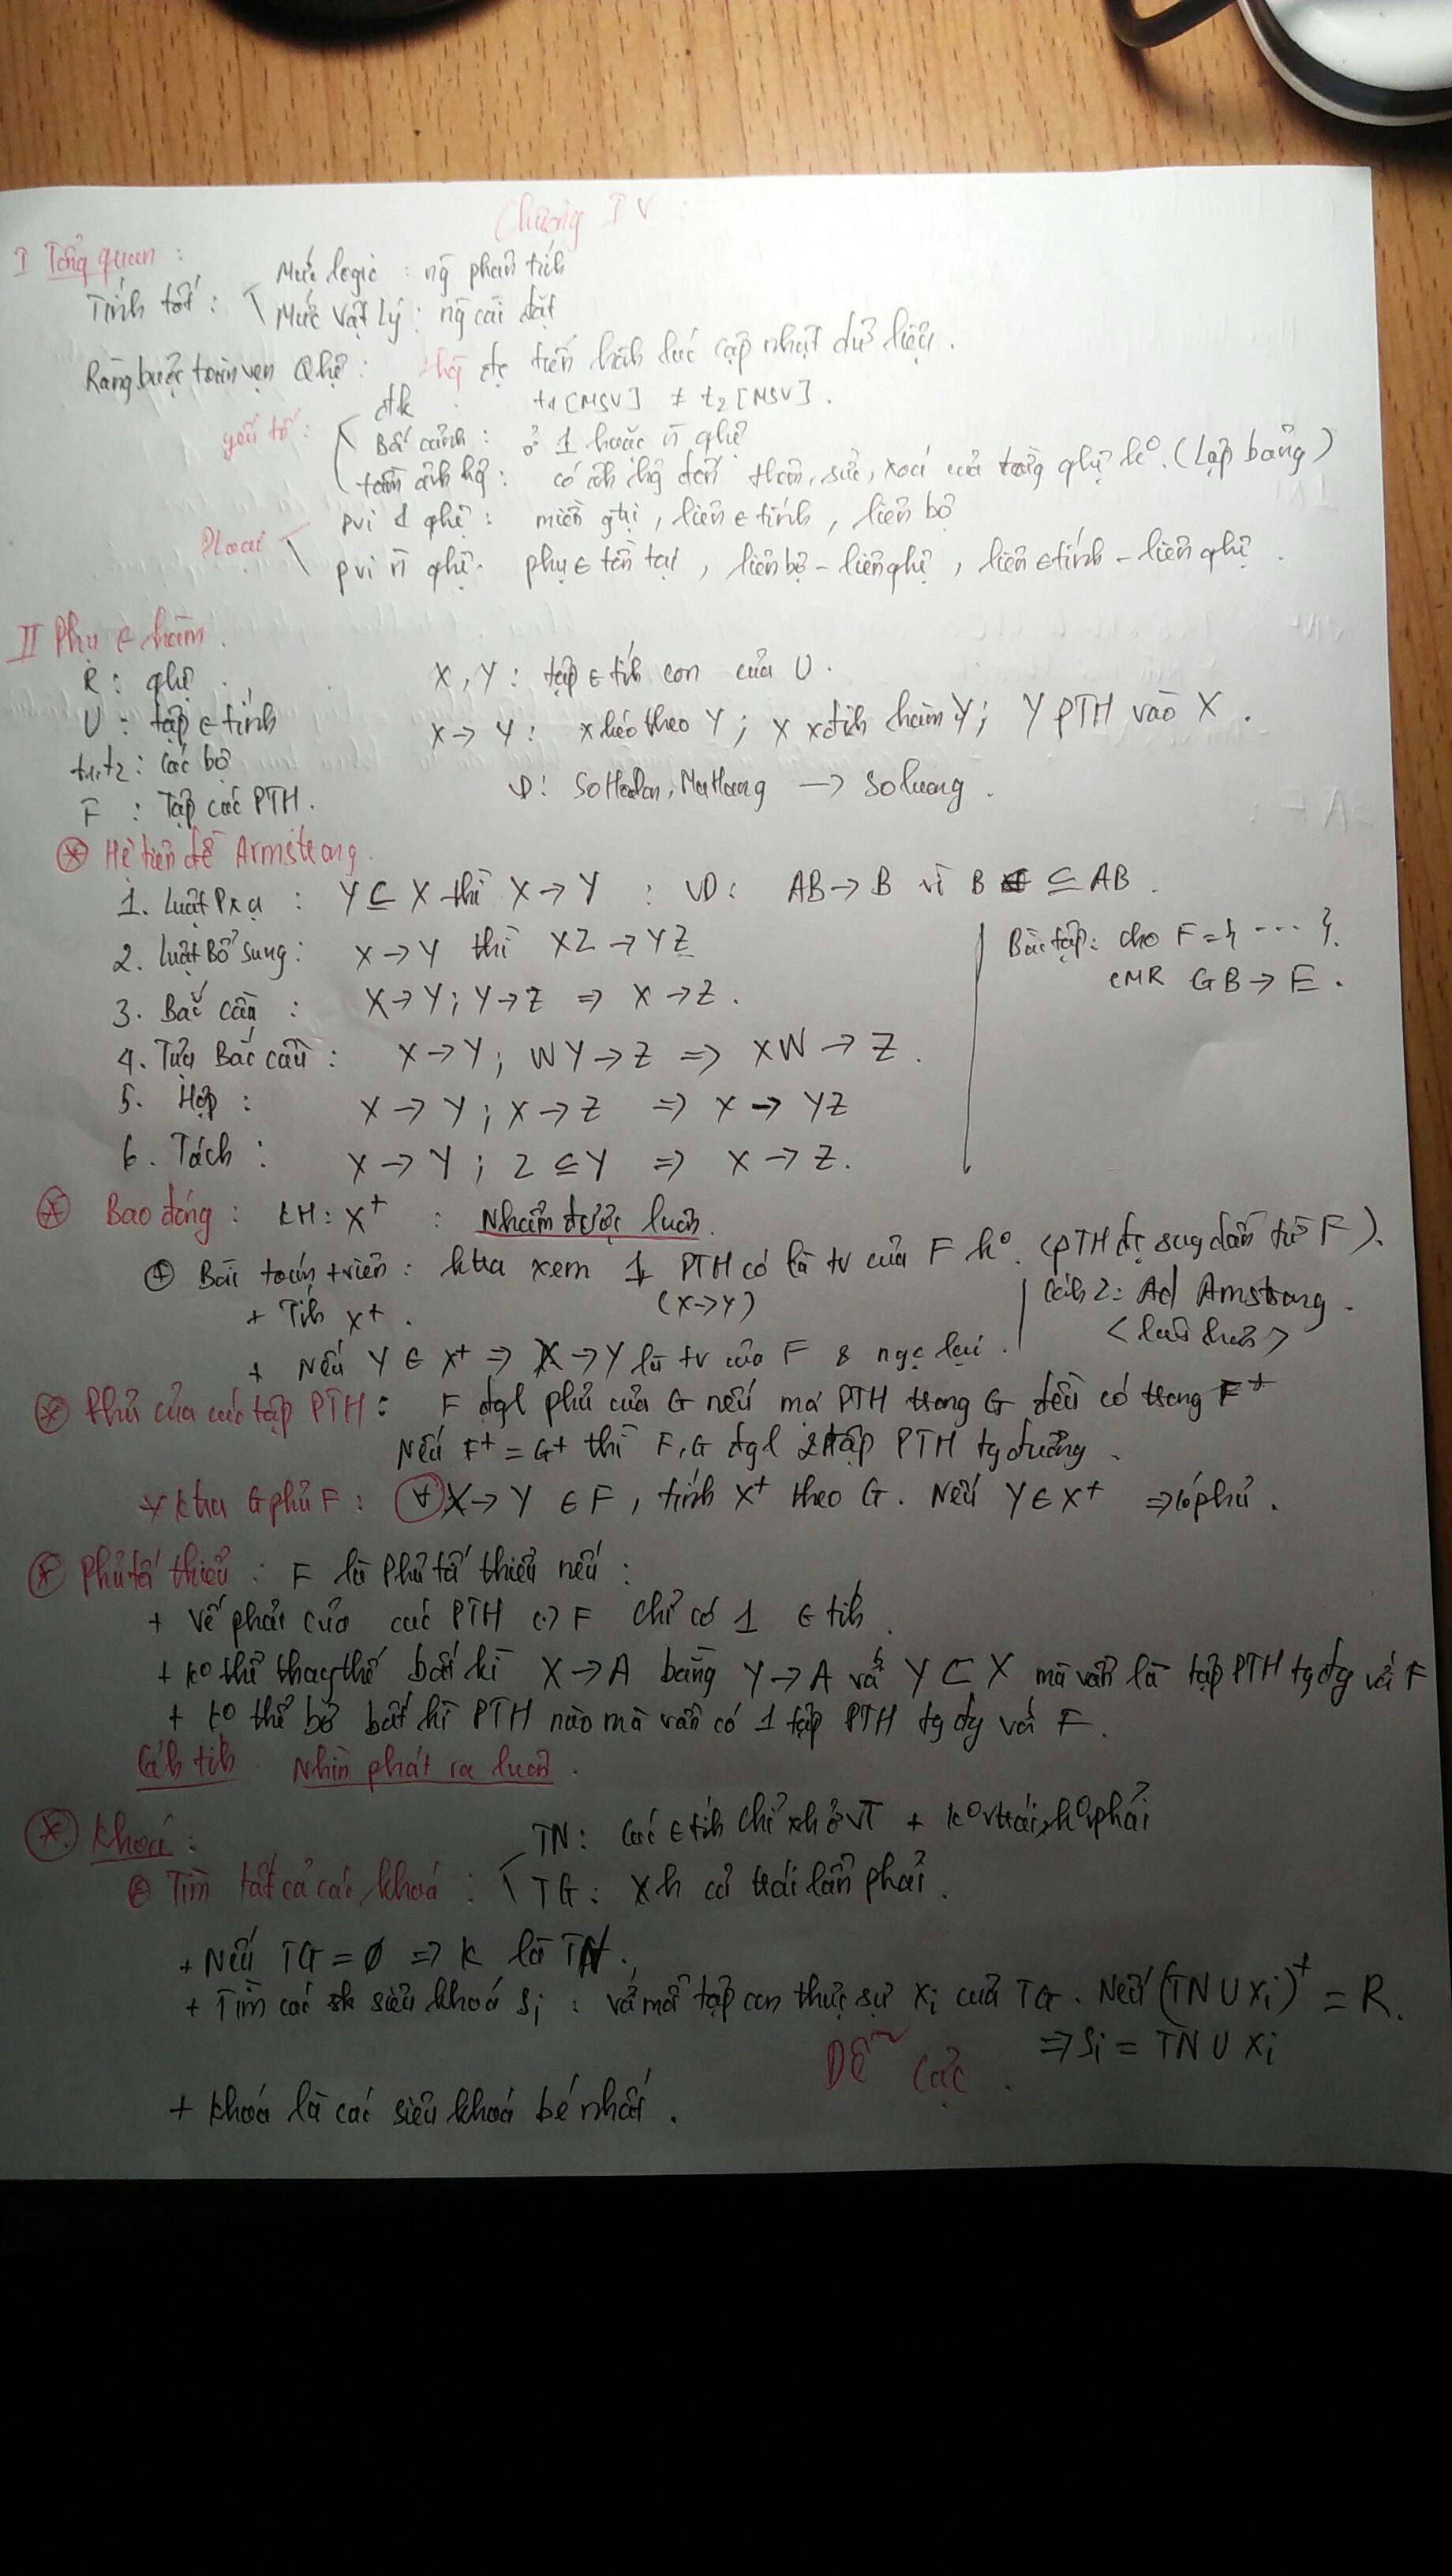 Chương IV :
I Tổng quan :
Tính tốt : Mức logic : ng phân tích
Mức vật lý : ng cài đặt
Ràng buộc toàn vẹn Qhệ : đc tiến hành lúc cập nhật dữ liệu .
yếu tố : đk : t1 [MSV] ≠ t2 [MSV] .
Bối cảnh : ở 1 hoặc n qhệ
tầm ảnh hg : có ảh hg đến thêm, sửa, xoá của từng qhệ ko. (Lập bảng)
Ploại pvi 1 qhệ : miền gtrị , liên ∈ tính , liên bộ
pvi n qhệ . phụ ∈ tồn tại , liên bộ - liên qhệ , liên ∈ tính - liên qhệ .
II Phụ ∈ hàm .
R : qhệ . X , Y : tập ∈ tíh con của U .
U : tập ∈ tính X → Y : X kéo theo Y ; X xđịh hàm Y ; Y PTH vào X .
t1, t2 : các bộ
F : Tập các PTH . VD : SoHoaDon, MaHang → soluong .
* Hệ tiên đề Armstrong .
1. Luật Pxạ : Y ⊆ X thì X → Y : VD : AB → B vì B ⊆ AB .
2. Luật Bổ sung : X → Y thì XZ → YZ
Bài tập : cho F = { ... } .
CMR GB → E .
3. Bắc cầu : X → Y ; Y → Z ⇒ X → Z .
4. Tựa Bắc cầu : X → Y ; WY → Z ⇒ XW → Z .
5. Hợp : X → Y ; X → Z ⇒ X → YZ
6. Tách : X → Y ; Z ⊆ Y ⇒ X → Z .
* Bao đóng : KH : X+ : Nhẩm được luôn .
+ Bài toán thviên : ktra xem 1 PTH có là tv của F ko . (PTH đc suy dẫn từ F) .
(X → Y)
+ Tíh X+ .
Cách 2 : Ad Amstrong .
+ Nếu Y ∈ X+ ⇒ X → Y là tv của F & ngc lại .
* Phủ của các tập PTH : F đgl phủ của G nếu mọi PTH trong G đều có trong F+
Nếu F+ = G+ thì F, G đgl 2 tập PTH tg đương .
* Ktra G phủ F : ∀ X → Y ∈ F , tính X+ theo G . Nếu Y ∈ X+ ⇒ có phủ .
* Phủ tối thiểu : F là Phủ tối thiểu nếu :
+ Vế phải của các PTH F chỉ có 1 ∈ tíh .
+ ko thể thay thế bất kì X → A bằng Y → A với Y ⊂ X mà vẫn là tập PTH tg đg với F
+ ko thể bỏ bất kì PTH nào mà vẫn có 1 tập PTH tg đg với F .
Cách tíh . Nhìn phát ra luôn .
* Khoá :
+ Tìm tất cả các khoá : TN : Các ∈ tíh chỉ xh ở VT + ko trái, ko phải
TG : xh cả trái lẫn phải .
+ Nếu TG = ∅ ⇒ K là TN .
+ Tìm các siêu khoá Si : với mỗi tập con thực sự Xi của TG . Nếu (TN ∪ Xi)+ = R .
⇒ Si = TN ∪ Xi
Dễ cực .
+ Khoá là các siêu khoá bé nhất .